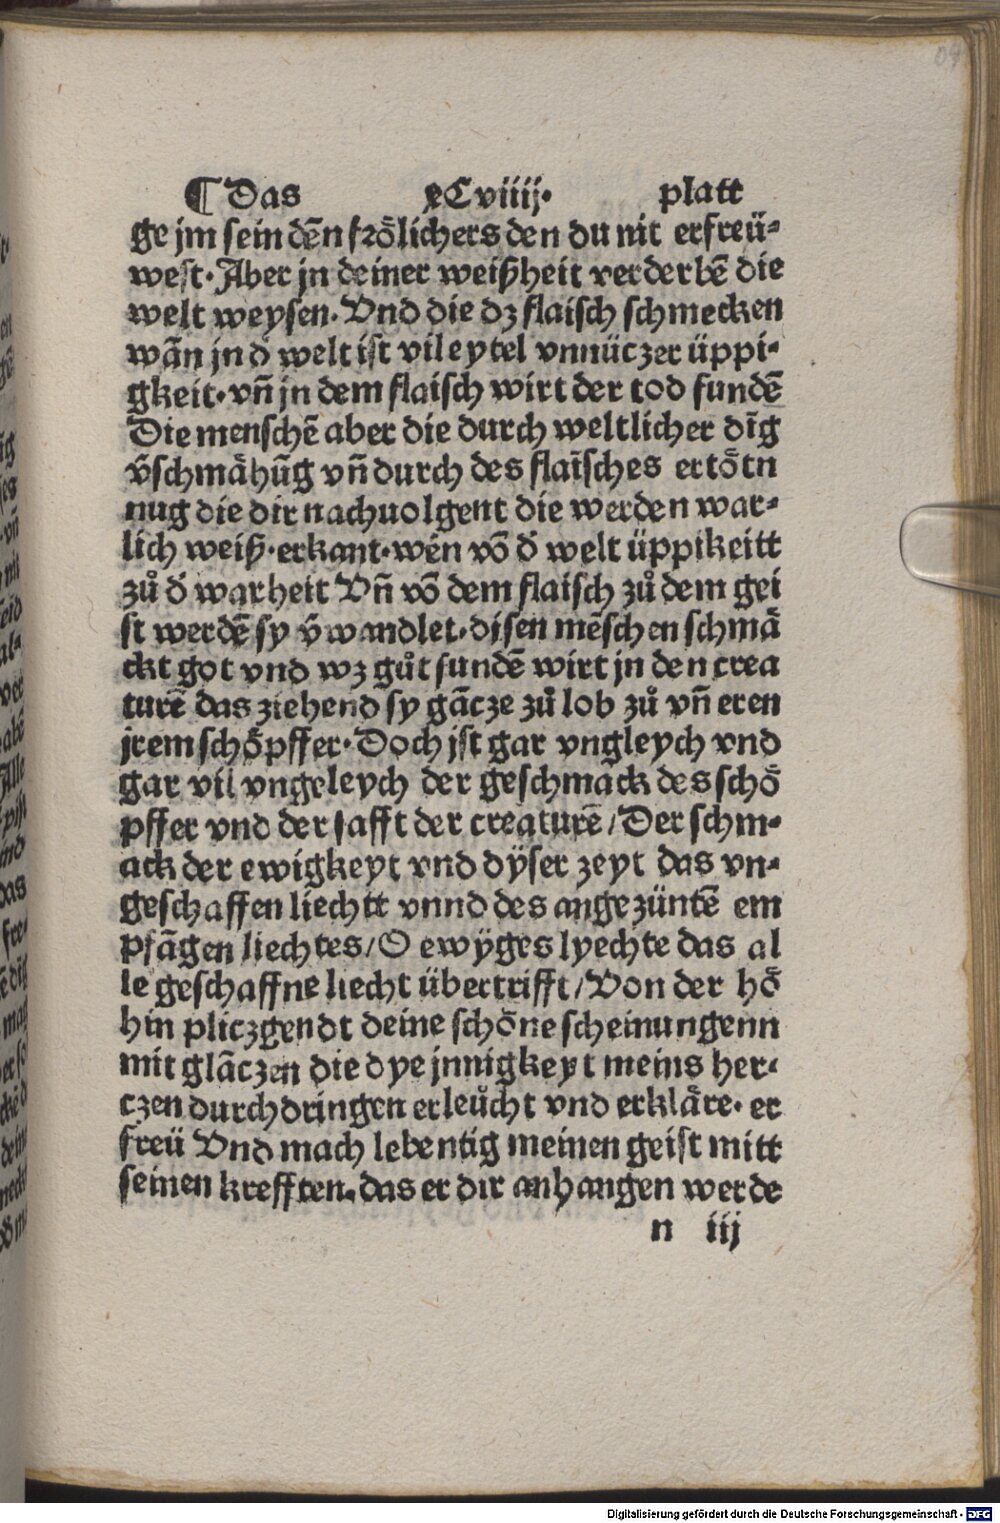 ¶ Das xCviiij· platt
ge jm sein dēn frölichers den du nit erfreü-
west· Aber jn deiner weißheit verderbē die
welt weysen· Vnd die dz flaisch schmecken
wān jn d̕ welt ist vil eytel vnnüczer üppi-
gkeit· vn̄ jn dem flaisch wirt der tod fundē
Die menschē aber die durch weltlicher dīg
v̕schmähūg vn̄ durch des flaisches ertötn
nug die dir nachuolgent die werden war-
lich weiß· erkant· wen̄ vō d̕ welt üppikeitt
zů d̕ warheit Vn̄ vō dem flaisch zů dem gei
st werdē sy v̕wandlet· disen mēschen schmä
ckt got vnd wz gůt fundē wirt jn den crea
turē das ziehend sy gācze zů lob zů vn̄ eren
jrem schöpffer· Doch jst gar vngleych vnd
gar vil vngeleych der geschmack des schö
pffer vnd der safft der creaturē / Der schm-
ack der ewigkeyt vnd dÿser zeyt das vn-
geschaffen liechtt vnnd des angezüntē em
pfāgen liechtes / O ewÿges lyechte das al
le geschaffne liecht übertrifft / Von der hö
hin pliczgendt deine schöne scheinungenn
mit glāczen die dye jnnigkeyt meins her-
czen durchdringen erleůcht vnd erkläre· er
freü Vnd mach lebentig meinen geist mitt
seinen krefften· das er dir anhangen werde
n iij
Digitalisierung gefördert durch die Deutsche Forschungsgemeinschaft - DFG